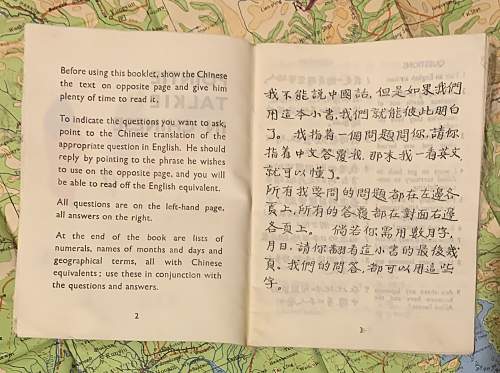 Before using this booklet, show the Chinese
the text on opposite page and give him
plenty of time to read it.
To indicate the questions you want to ask,
point to the Chinese translation of the
appropriate question in English. He should
reply by pointing to the phrase he wishes
to use on the opposite page, and you will
be able to read off the English equivalent.
All questions are on the left-hand page,
all answers on the right.
At the end of the book are lists of
numerals, names of months and days and
geographical terms, all with Chinese
equivalents; use these in conjunction with
the questions and answers.
2
我不能說中國話，但是如果我們
用這本小書，我們就能彼此明白
了。我指着一個問題問你，請你
指着中文答覆我，那末我一看英文
就可以懂了。
所有我要問的問題都在左邊各
頁上，所有的答覆都在對面右邊
各頁上。 倘若你需用數目字，
月日，請你翻看這小書的最後幾
頁。我們的問答，都可以用這些
字。
3